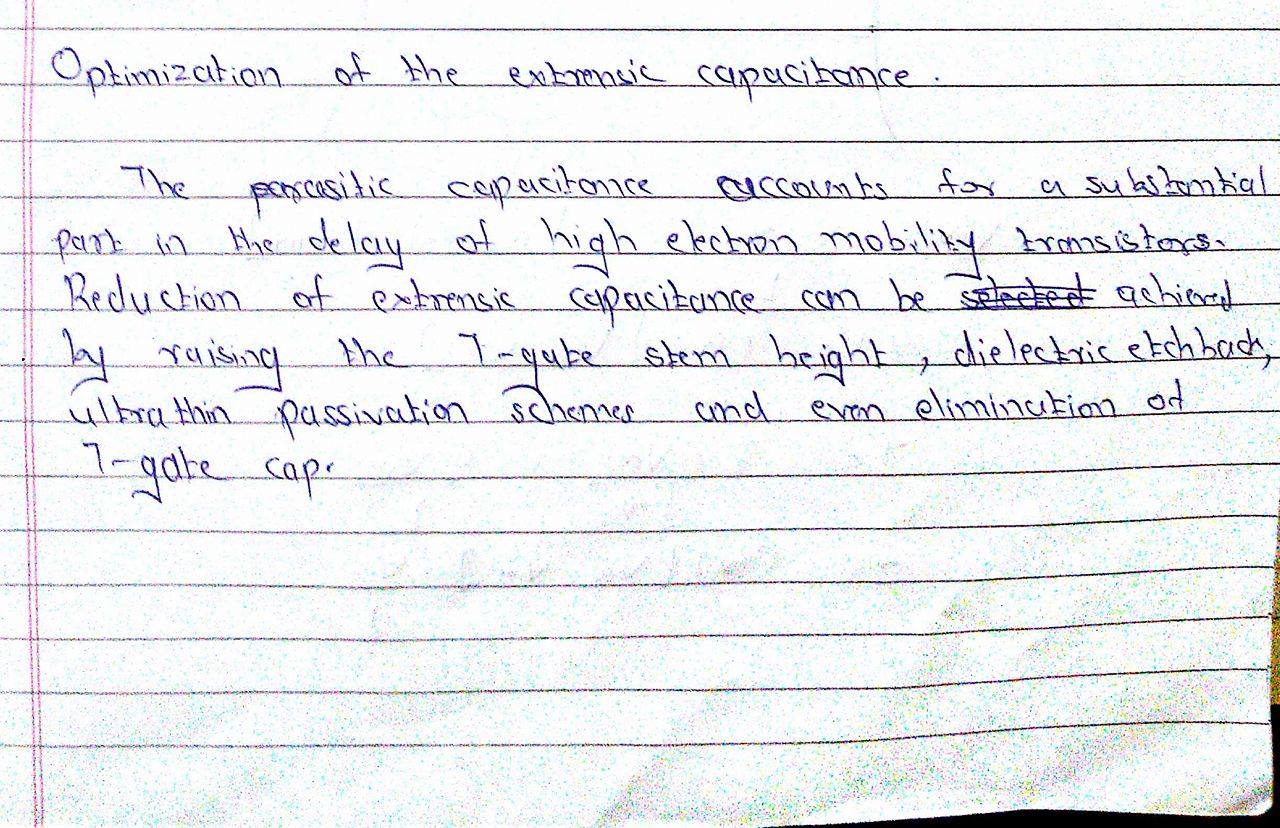 Optimization of the extrensic capacitance.
The parasitic capacitance accounts for a substantial
part in the delay of high electron mobility transistors.
Reduction of extrensic capacitance can be selected achieved
by raising the T-gate stem height, dielectric etchback,
ultra thin passivation schemes and even elimination of
T-gate cap.